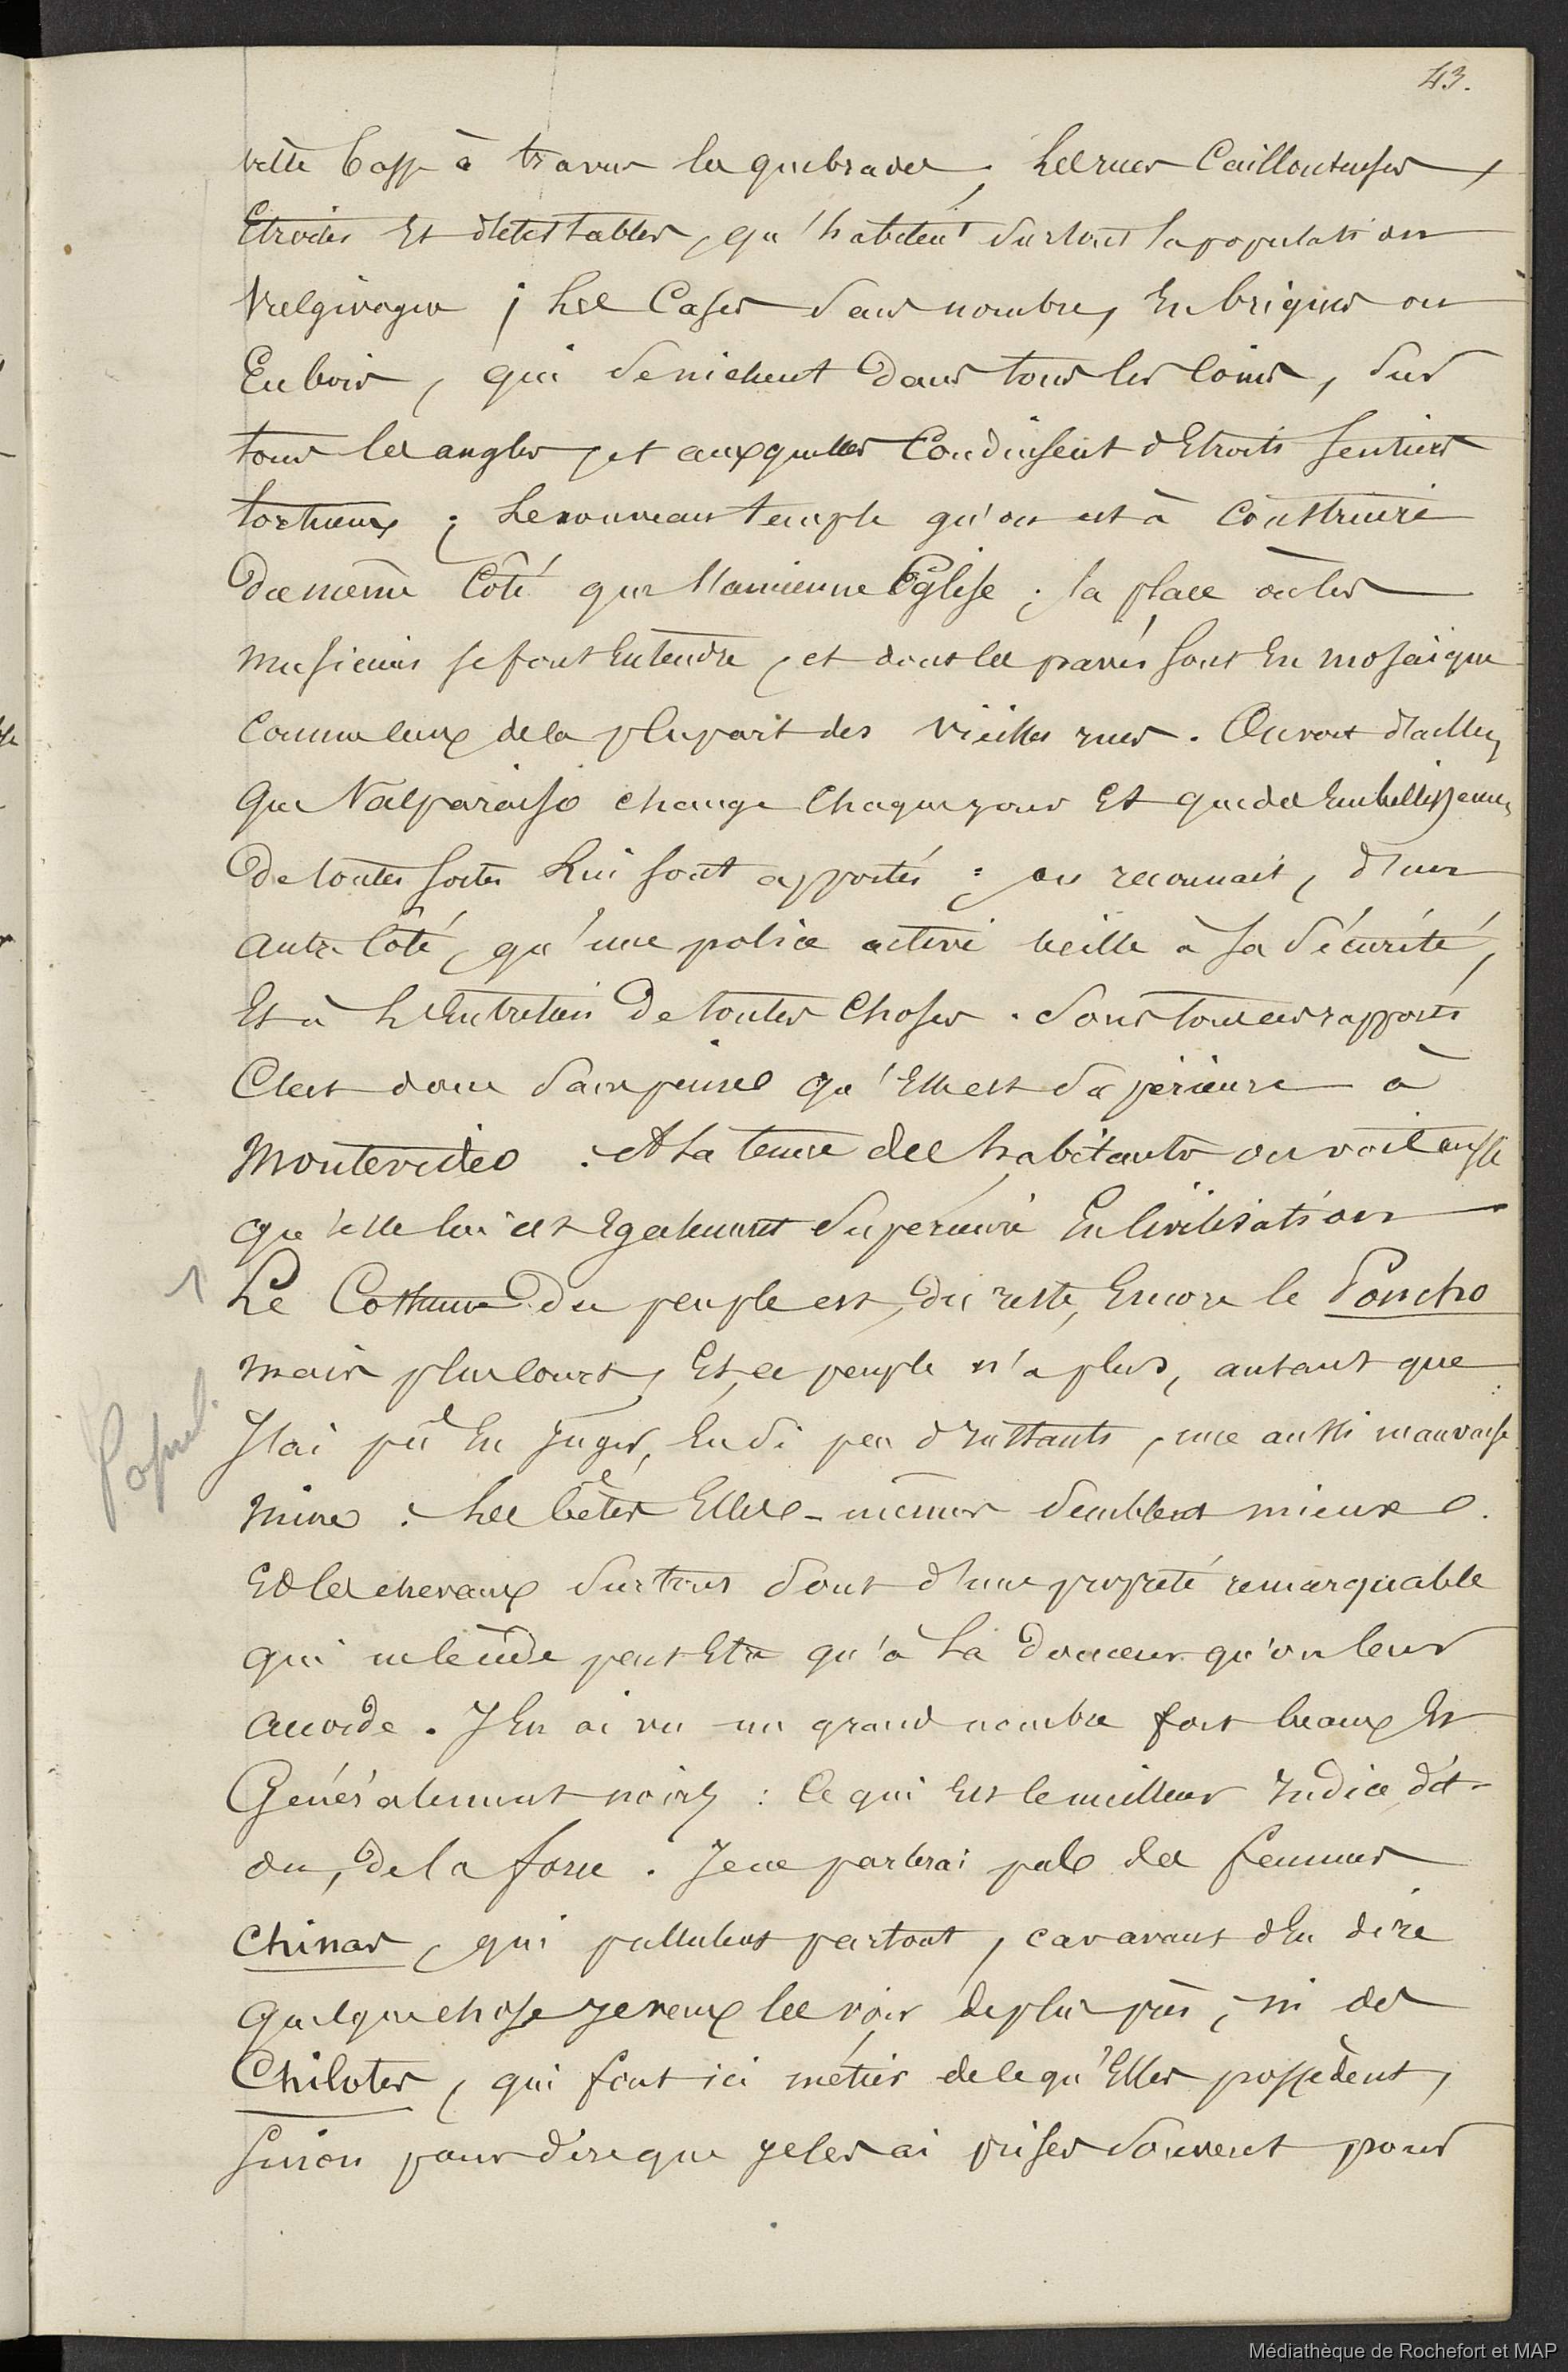 43.
ville basse à travers les quebrades ; les rues caillouteuses,
Etroites Et détestables, qu'habitent surtout la population
; les Cases sans nombre, En briques ou
En bois, qui se nichent Dans tous les Coins, sur
tous les angles, et auxquelles Conduisent d'Etroits sentiers
tortueux ; Le nouveau temple qu'on est à Construire
Du même Côté que l'ancienne Eglise ; la place où les
musiciens se font Entendre, et dont les pavés sont En mosaïque
Comme Ceux de la plupart des vieilles rues. On voit d'ailleurs
Que Valparaiso change Chaque jour Et que des Embellissemens
De toutes sortes Lui sont apportés ; on reconnait, d'un
autre Côté, qu'une police active veille à sa sécurité,
Et à l'Entretien De toutes Choses. Sous tous ces rapports
C'est donc sans peine qu'Elle est supérieure à
Montevideo. A la tenue des habitants on voit aussi
qu'elle lui est Egalement supérieure En Civilisation
Le Costume Du peuple est, du reste, Encore le Poncho
mais plus court, Et ce peuple n'a plus, autant que
J'ai pû En juger, En si peu d'Instants, une aussi mauvaise
mine : les bêtes Elles-mêmes semblent mieux.
Et les chevaux surtout sont d'une propreté remarquable
qui ne le cède peut Etre qu'à La Douceur qu'on leur
accorde. J'En ai vu un grand nombre fort beaux Et
Généralement noirs : Ce qui Est le meilleur Indice, dit-
on, De la force. Je ne parlerai pas des femmes
Chinas, qui pullulent partout, car avant d'En dire
Quelque chose je veux les voir de plus près, ni des
Chilotes, qui font ici métier de ce qu'Elles possèdent,
Sinon pour dire que je les ai prises souvent pour
Popul.
Médiathèque de Rochefort et MAP